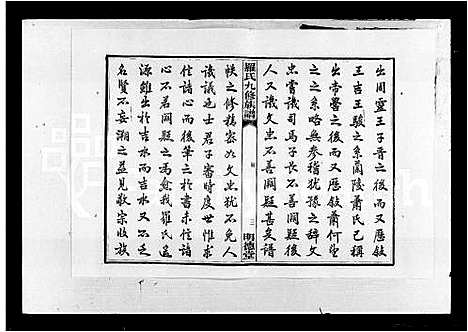 出周靈王子晉之後而又歷敘
王吉王駿之系蘭陵蕭氏已稱
出帝嚳之後而又歷敘蕭何望
之之系略無參稽猶豫之辭文
忠嘗議司馬子長不善闕疑而
人又議文忠不善闕疑甚矣譜
羅氏九修族譜
三
明德堂
牒之修精密如文忠猶不免人
議議也士君子審時度世惟求
信諸心而後筆之於書未信諸
心不若闕疑之為愈我羅氏遠
源雖出於吉水而吉水又不乏
名賢不妄溯之益見敬宗收族